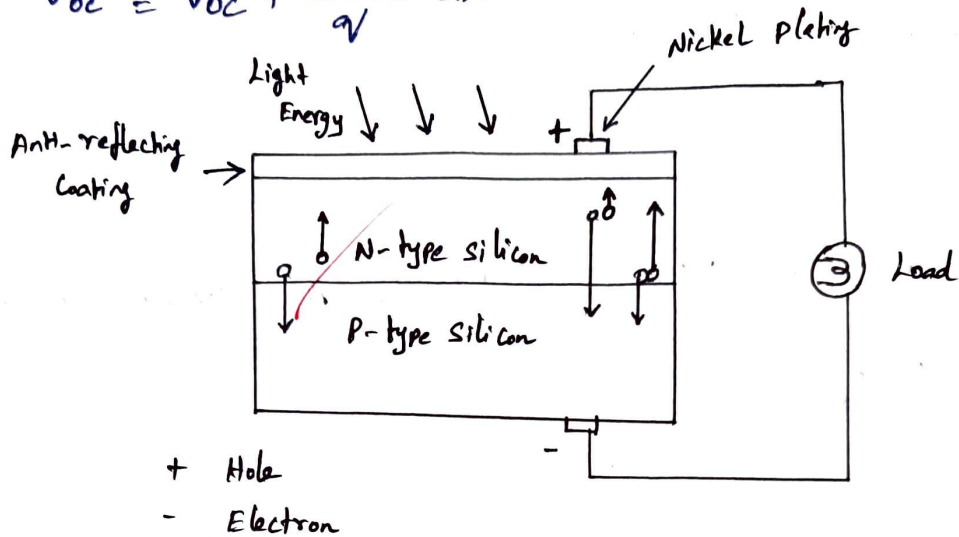 Voc = Voc +
q
Nickel Plating
Light
Energy
+
Anti-reflecting
Coating
N-type silicon
Load
P-type silicon
-
+ Hole
- Electron